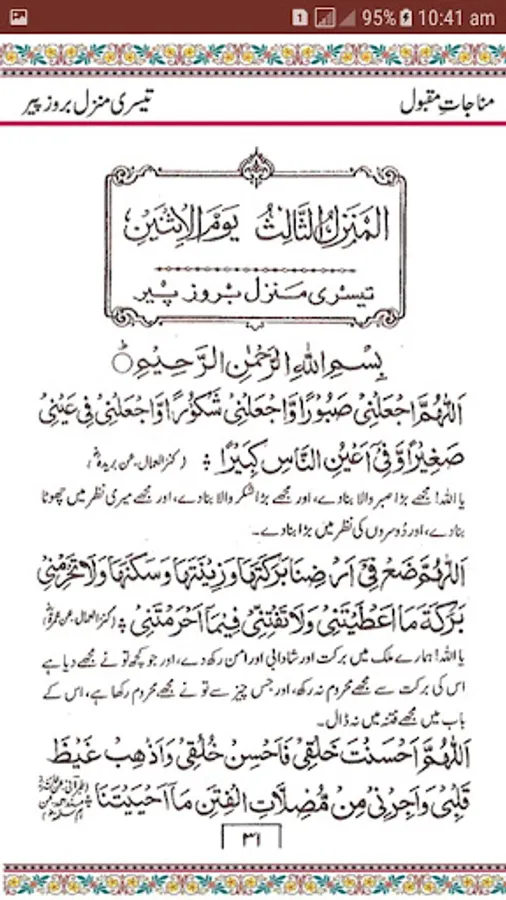 1 95% 10:41 am
مناجاتِ مقبول تیسری منزل بروز پیر
اَلْمَنْزِلُ الثَّالِثُ يَوْمَ الْاِثْنَيْنِ
تیسری منزل بروز پیر
بِسْمِ اللهِ الرَّحْمٰنِ الرَّحِيْمِ
اَللّٰهُمَّ اجْعَلْنِيْ صَبُوْرًا وَّاجْعَلْنِيْ شَكُوْرًا وَّاجْعَلْنِيْ فِيْ عَيْنِيْ
صَغِيْرًا وَّفِيْٓ اَعْيُنِ النَّاسِ كَبِيْرًا (کنز العمال، عن بریدہؓ)
یا اللہ! مجھے بڑا صبر والا بنا دے، اور مجھے بڑا شکر والا بنا دے، اور مجھے میری نظر میں چھوٹا
بنا دے، اور دُوسروں کی نظر میں بڑا بنا دے۔
اَللّٰهُمَّ ضَعْ فِيْٓ اَرْضِنَا بَرَكَتَهَا وَزِيْنَتَهَا وَسَكَنَهَا وَلَا تَحْرِمْنِيْ
بَرَكَةَ مَآ اَعْطَيْتَنِيْ وَلَا تَفْتِنِّيْ فِيْمَآ اَحْرَمْتَنِيْ (کنز العمال، عن سمرۃؓ)
یا اللہ! ہمارے ملک میں برکت اور شادابی اور امن رکھ دے، اور جو کچھ تو نے مجھے دیا ہے
اس کی برکت سے مجھے محروم نہ رکھ، اور جس چیز سے تو نے مجھے محروم رکھا ہے، اس کے
باب میں مجھے فتنہ میں نہ ڈال۔
اَللّٰهُمَّ اَحْسَنْتَ خَلْقِيْ فَاَحْسِنْ خُلُقِيْ وَاَذْهِبْ غَيْظَ
قَلْبِيْ وَاَجِرْنِيْ مِنْ مُّضِلَّاتِ الْفِتَنِ مَآ اَحْيَيْتَنَا
۳۱